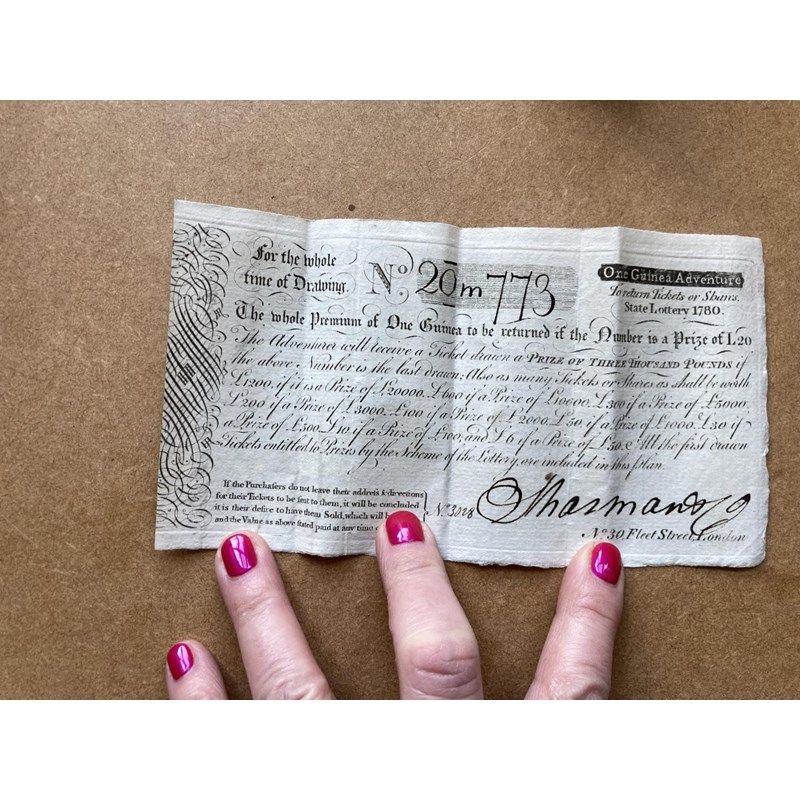 For the whole
time of Drawing.
Nº 20m773
One Guinea Adventure
To return Tickets or Shares.
State Lottery 1780.
The whole Premium of One Guinea to be returned if the Number is a Prize of L20
The Adventurer will receive a Ticket drawn a PRIZE OF THREE THOUSAND POUNDS if
the above Number is the last drawn: Also as many Tickets or Shares as shall be worth
£1200, if it is a Prize of £20000, £600 if a Prize of £10000, £300 if a Prize of £5000,
£200 if a Prize of £3000, £100 if a Prize of £2000, £50, if a Prize of £1000, £30 if
a Prize of £500, £10 if a Prize of £100, and £6 if a Prize of £50. All the first drawn
Tickets entitled to Prizes by the Scheme of the Lottery, are included in this plan.
If the Purchaſers do not leave their addreſs & directions
for their Tickets to be ſent to them, it will be concluded
it is their deſire to have them Sold, which will
and the Value as above ſtated paid at any time
Nº 3028
Nº 30, Fleet Street, London